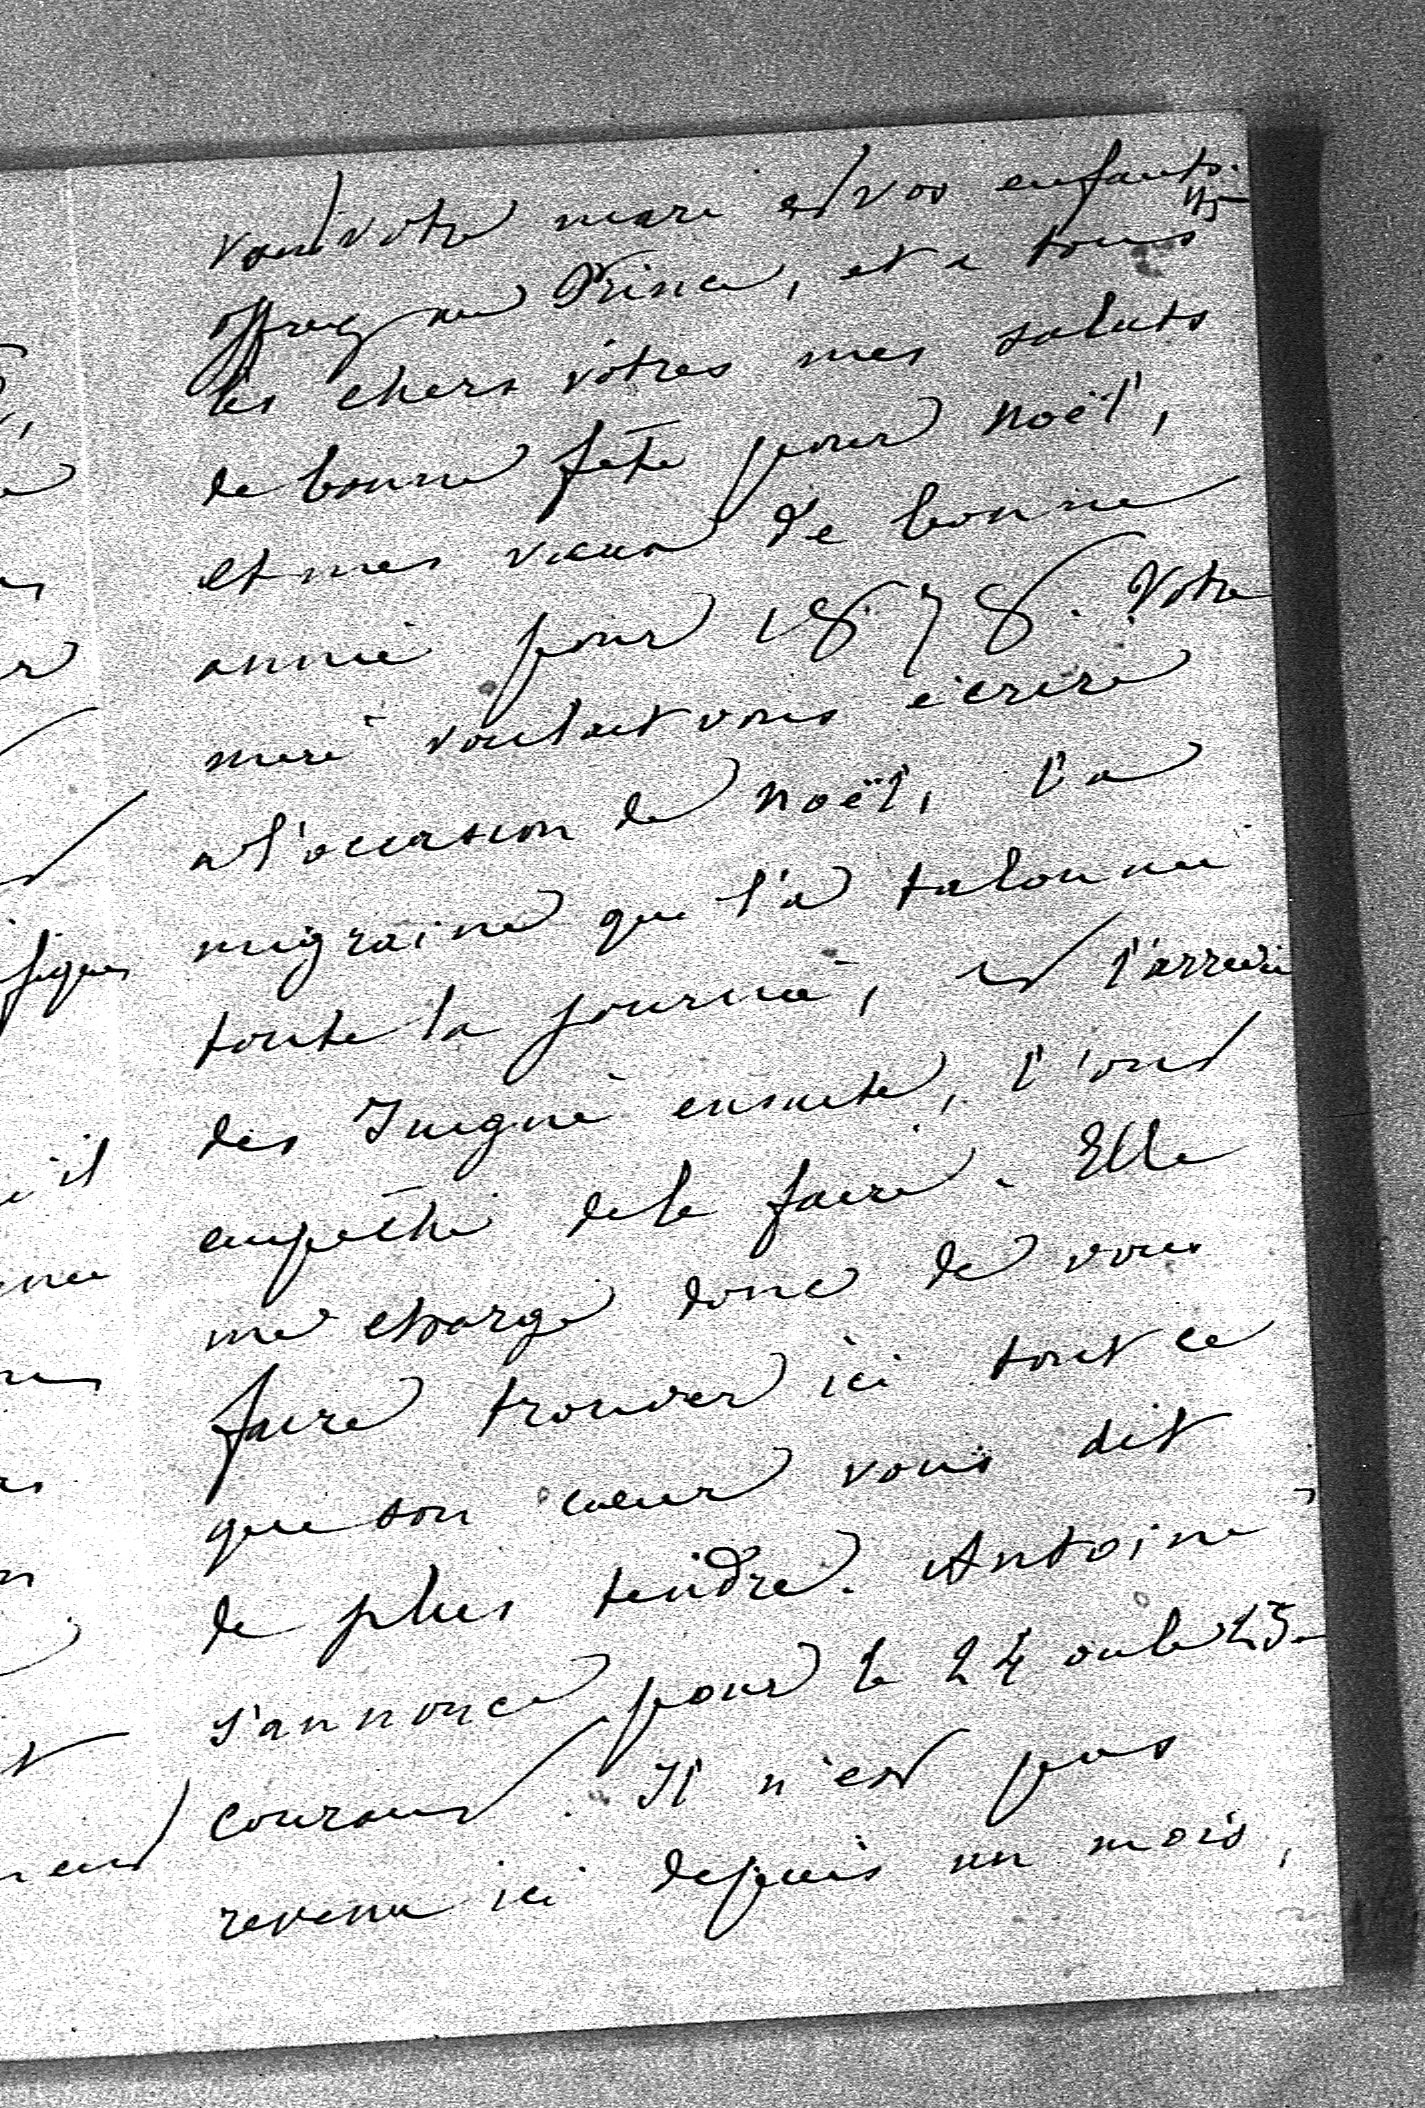 vous votre mari et vos enfants.
115
offrez au Prince, et a tous
les chers vôtres mes saluts
de bonne fête pour Noël,
et mes vœux de bonne
année pour 1878. Votre
mère voulait vous écrire
a l'occasion de Noël, la
migraine qui l'a talonnée
toute la journée, et l'arrivée
des Juigné ensuite, l'ont
empêché de le faire. Elle
me charge donc de vous
faire trouver ici tout ce
que son cœur vous dit
de plus tendre. Antoine
s'annonce pour le 24 ou le 25
courant. Il n'est pas
revenu ici depuis un mois,
figues
il